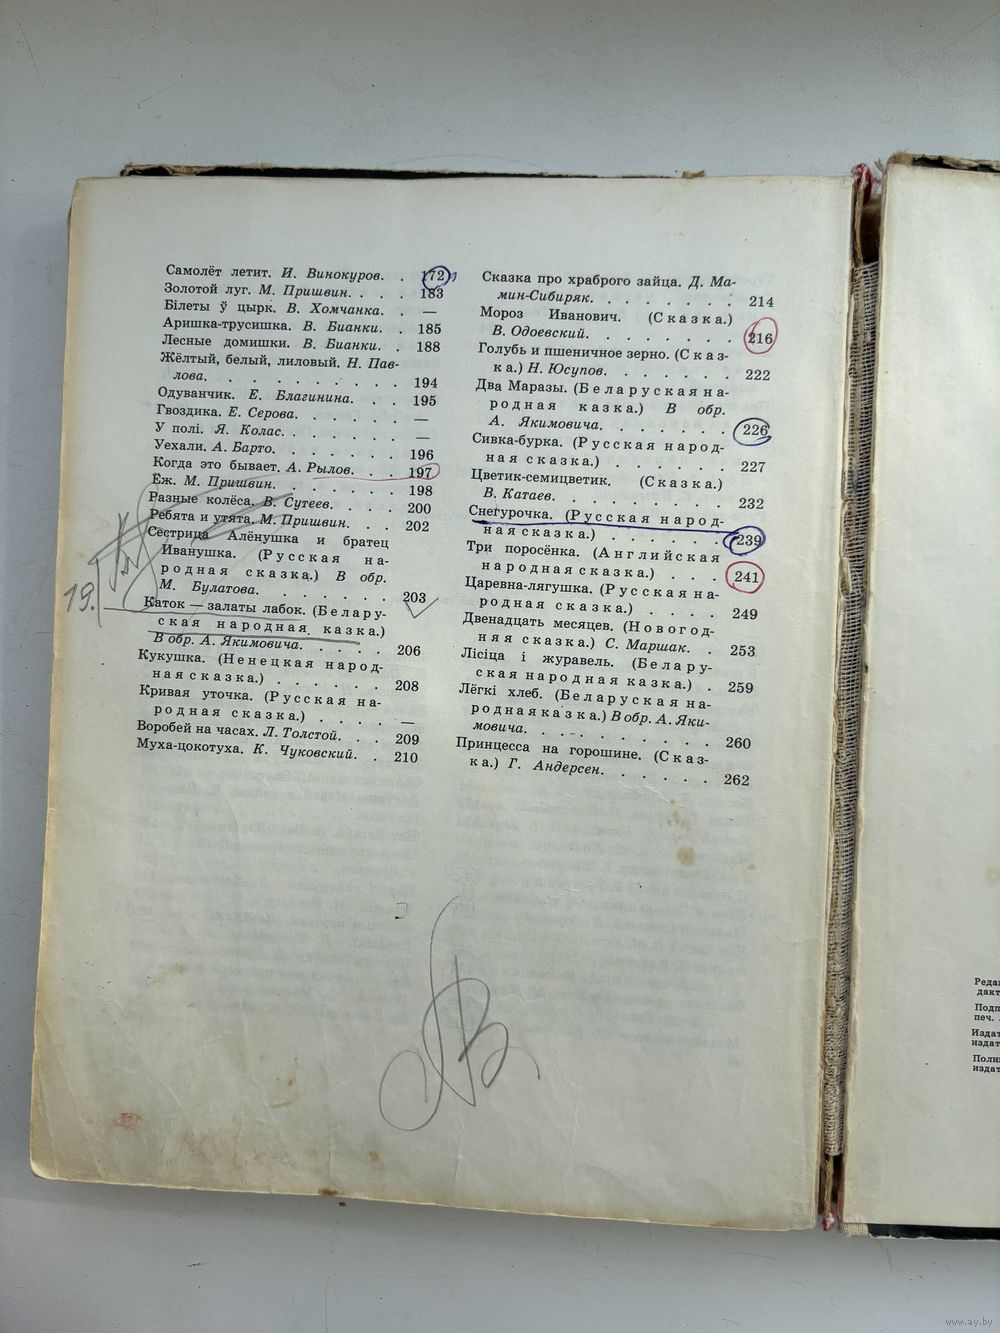 Самолёт летит. И. Винокуров. . 172
Золотой луг. М. Пришвин. . . . 183
Білеты ў цырк. В. Хомчанка. . —
Аришка-трусишка. В. Бианки. . 185
Лесные домишки. В. Бианки. . 188
Жёлтый, белый, лиловый. Н. Пав-
лова. . . . . . . . . . 194
Одуванчик. Е. Благинина. . . 195
Гвоздика. Е. Серова. . . . . —
У полі. Я. Колас. . . . . . —
Уехали. А. Барто. . . . . . 196
Когда это бывает. А. Рылов. . . 197
Ёж. М. Пришвин. . . . . . . 198
Разные колёса. В. Сутеев. . . . 200
Ребята и утята. М. Пришвин. . . 202
Сестрица Алёнушка и братец
Иванушка. (Русская на-
родная сказка.) В обр.
М. Булатова. . . . . . . 203
Каток — залаты лабок. (Белару-
ская народная казка.)
В обр. А. Якимовича. . . . . 206
Кукушка. (Ненецкая народ-
ная сказка.) . . . . . . 208
Кривая уточка. (Русская на-
родная сказка.) . . . . —
Воробей на часах. Л. Толстой. . . 209
Муха-цокотуха. К. Чуковский. . 210
19.
Сказка про храброго зайца. Д. Ма-
мин-Сибиряк. . . . . . . 214
Мороз Иванович. (Сказка.)
В. Одоевский. . . . . . . 216
Голубь и пшеничное зерно. (Сказ-
ка.) Н. Юсупов. . . . . . 222
Два Маразы. (Беларуская на-
родная казка.) В обр.
А. Якимовича. . . . . . 226
Сивка-бурка. (Русская народ-
ная сказка.) . . . . . . 227
Цветик-семицветик. (Сказка.)
В. Катаев. . . . . . . . 232
Снегурочка. (Русская народ-
ная сказка.) . . . . . . 239
Три поросёнка. (Английская
народная сказка.) . . . 241
Царевна-лягушка. (Русская на-
родная сказка.) . . . . 249
Двенадцать месяцев. (Новогод-
няя сказка.) С. Маршак. . 253
Лісіца і журавель. (Белару-
ская народная казка.) . 259
Лёгкі хлеб. (Беларуская на-
родная казка.) В обр. А. Яки-
мовича. . . . . . . . . 260
Принцесса на горошине. (Сказ-
ка.) Г. Андерсен. . . . . . 262
Реда
дакт
Подп
печ.
Издат
издат
Поли
издат
www.ay.by